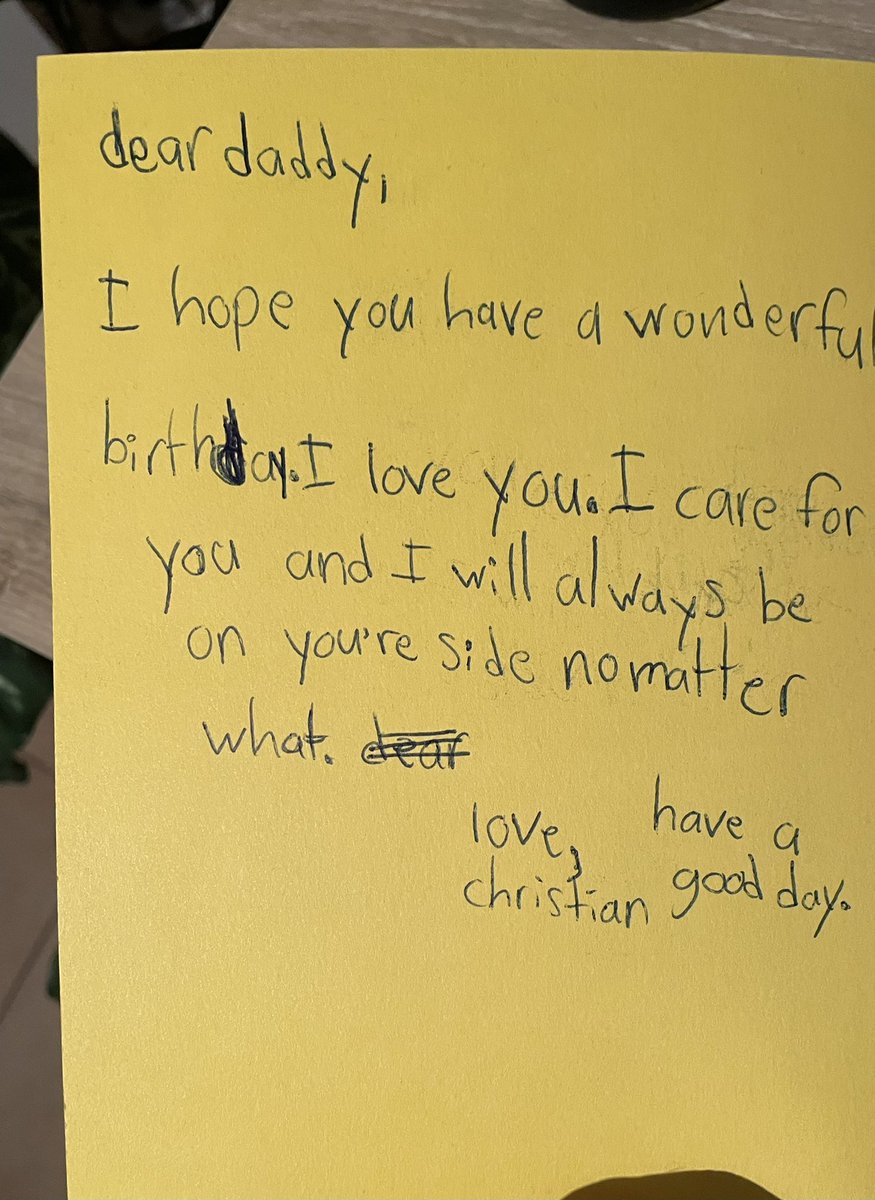 dear daddy,
I hope you have a wonderful
birthday. I love you. I care for
you and I will always be
on you're side no matter
what. dear
love,
christian
have a
good day.